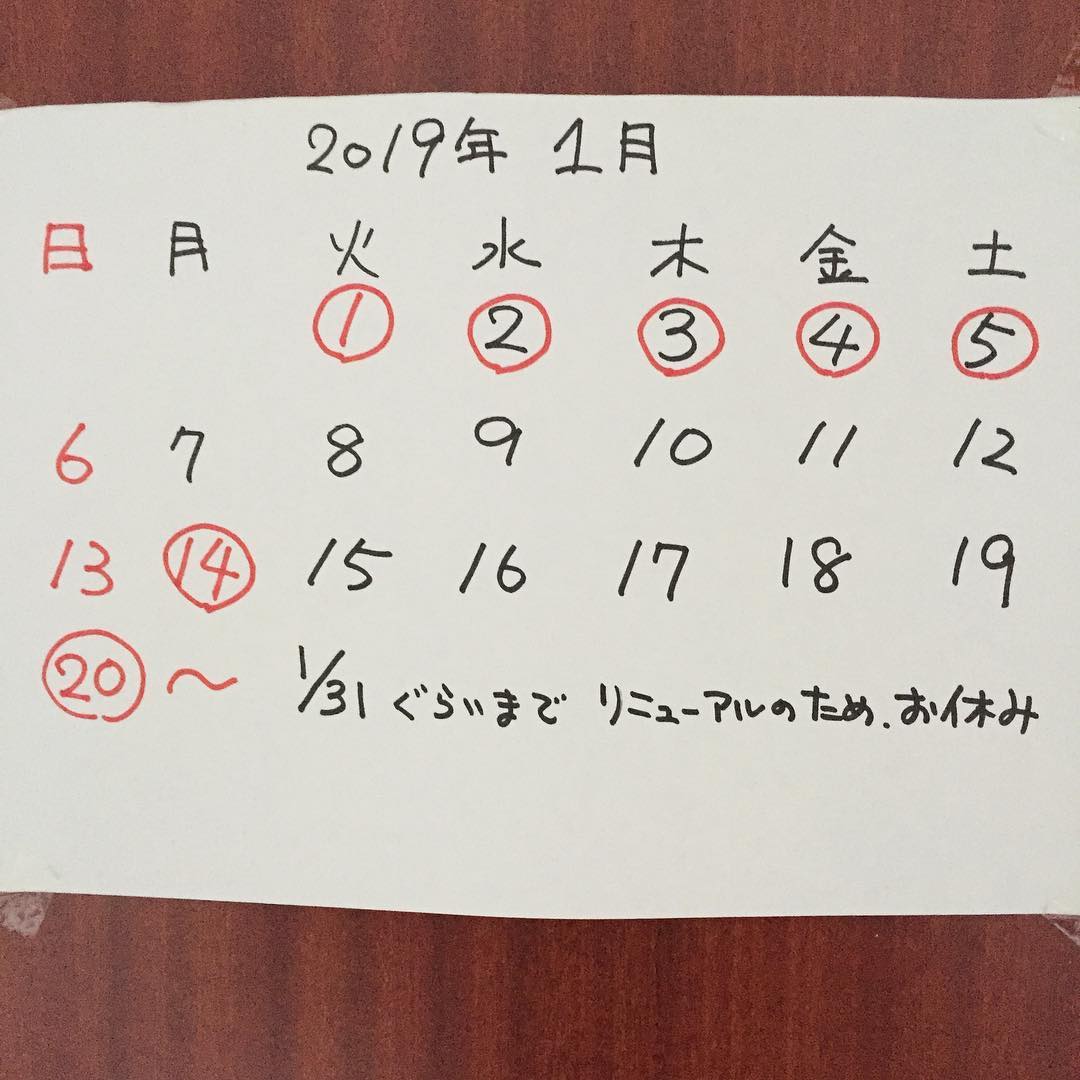 2019年 1月
日 月 火 水 木 金 土
① ② ③ ④ ⑤
6 7 8 9 10 11 12
13 ⑭ 15 16 17 18 19
⑳ 〜 1/31 ぐらいまで リニューアルのため、お休み